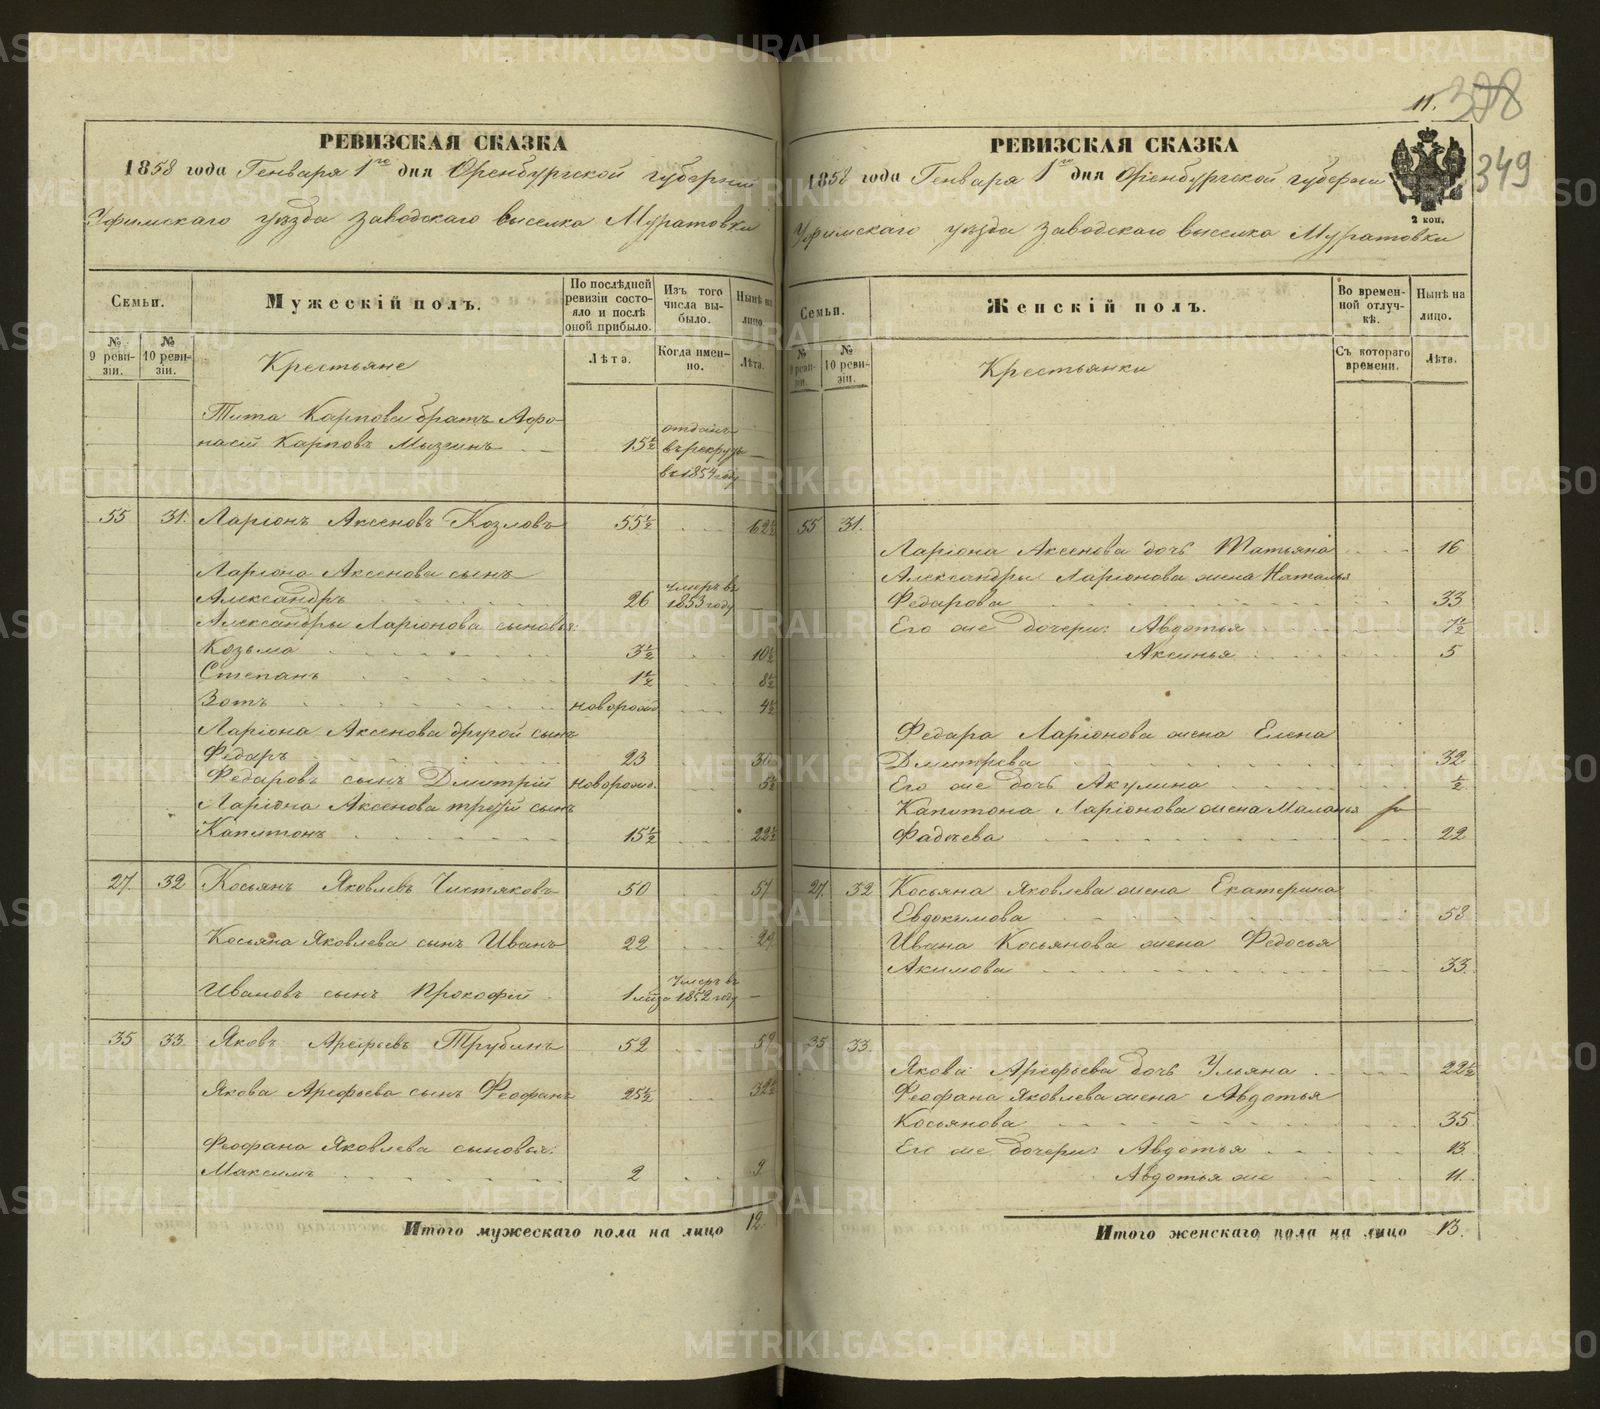 РЕВИЗСКАЯ СКАЗКА
1858 года Генваря 1го дня Оренбургской губернии
Уфимскаго уѣзда заводскаго выселка Муратовки
Семьи.
Мужескій полъ.
По послѣдней ревизіи состояло и послѣ оной прибыло.
Изъ того числа выбыло.
Нынѣ на лицо.
№ 9 ревизіи.
№ 10 ревизіи.
Крестьяне
Лѣта.
Когда именно.
Лѣта.
Тита Карпова братъ Афо-
насій Карповъ Мызгинъ 15½ отданъ въ рекруты в 1854 году —
55 31. Ларіонъ Аксеновъ Козловъ 55½ 62½
Ларіона Аксенова сынъ
Александръ 26 Умеръ въ 1853 году —
Александры Ларіонова сыновья:
Козьма 3½ 10½
Степанъ 1½ 8½
Зотъ новорожд 4½
Ларіона Аксенова другой сынъ
Федаръ 23 30
Федаровъ сынъ Дмитрій новорожд. 5½
Ларіона Аксенова третій сынъ
Капитонъ 15½ 22½
27. 32 Косьянъ Яковлевъ Чистяковъ 50 57
Косьяна Яковлева сынъ Иванъ 22 29
Ивановъ сынъ Прокофій 1 Умеръ въ 1852 году —
35 33. Яковъ Арефьевъ Трубинъ 52 59
Якова Арефьева сынъ Феофанъ 25½ 32½
Феофана Яковлева сыновья:
Максимъ 2 9
Итого мужескаго пола на лицо 12.
11. 378
349
РЕВИЗСКАЯ СКАЗКА
1858 года Генваря 1го дня Оренбургской губерніи
2 коп.
Уфимскаго уѣзда заводскаго выселка Муратовки
Семьи.
Женскій полъ.
Во временной отлучкѣ.
Нынѣ на лицо.
№ 9 ревизіи.
№ 10 ревизіи.
Крестьянки
Съ котораго времени.
Лѣта.
55 31.
Ларіона Аксенова дочь Татьяна 16
Александры Ларіонова жена Наталья
Федарова 33
Его же дочери: Авдотья 7½
Аксинья 5
Федара Ларіонова жена Елена
Дмитріева 32
Его же дочь Акулина ½
Капитона Ларіонова жена Маланья
Фадѣева 22
27. 32 Косьяна Яковлева жена Екатерина
Евдокимова 58
Ивана Косьянова жена Федосья
Акимова 33.
35 33.
Якова Арефьева дочь Ульяна 22½
Феофана Яковлева жена Авдотья
Косьянова 35.
Его же дочери: Авдотья 13.
Авдотья же 11.
Итого женскаго пола на лицо 13.
METRIKI.GASO-URAL.RU